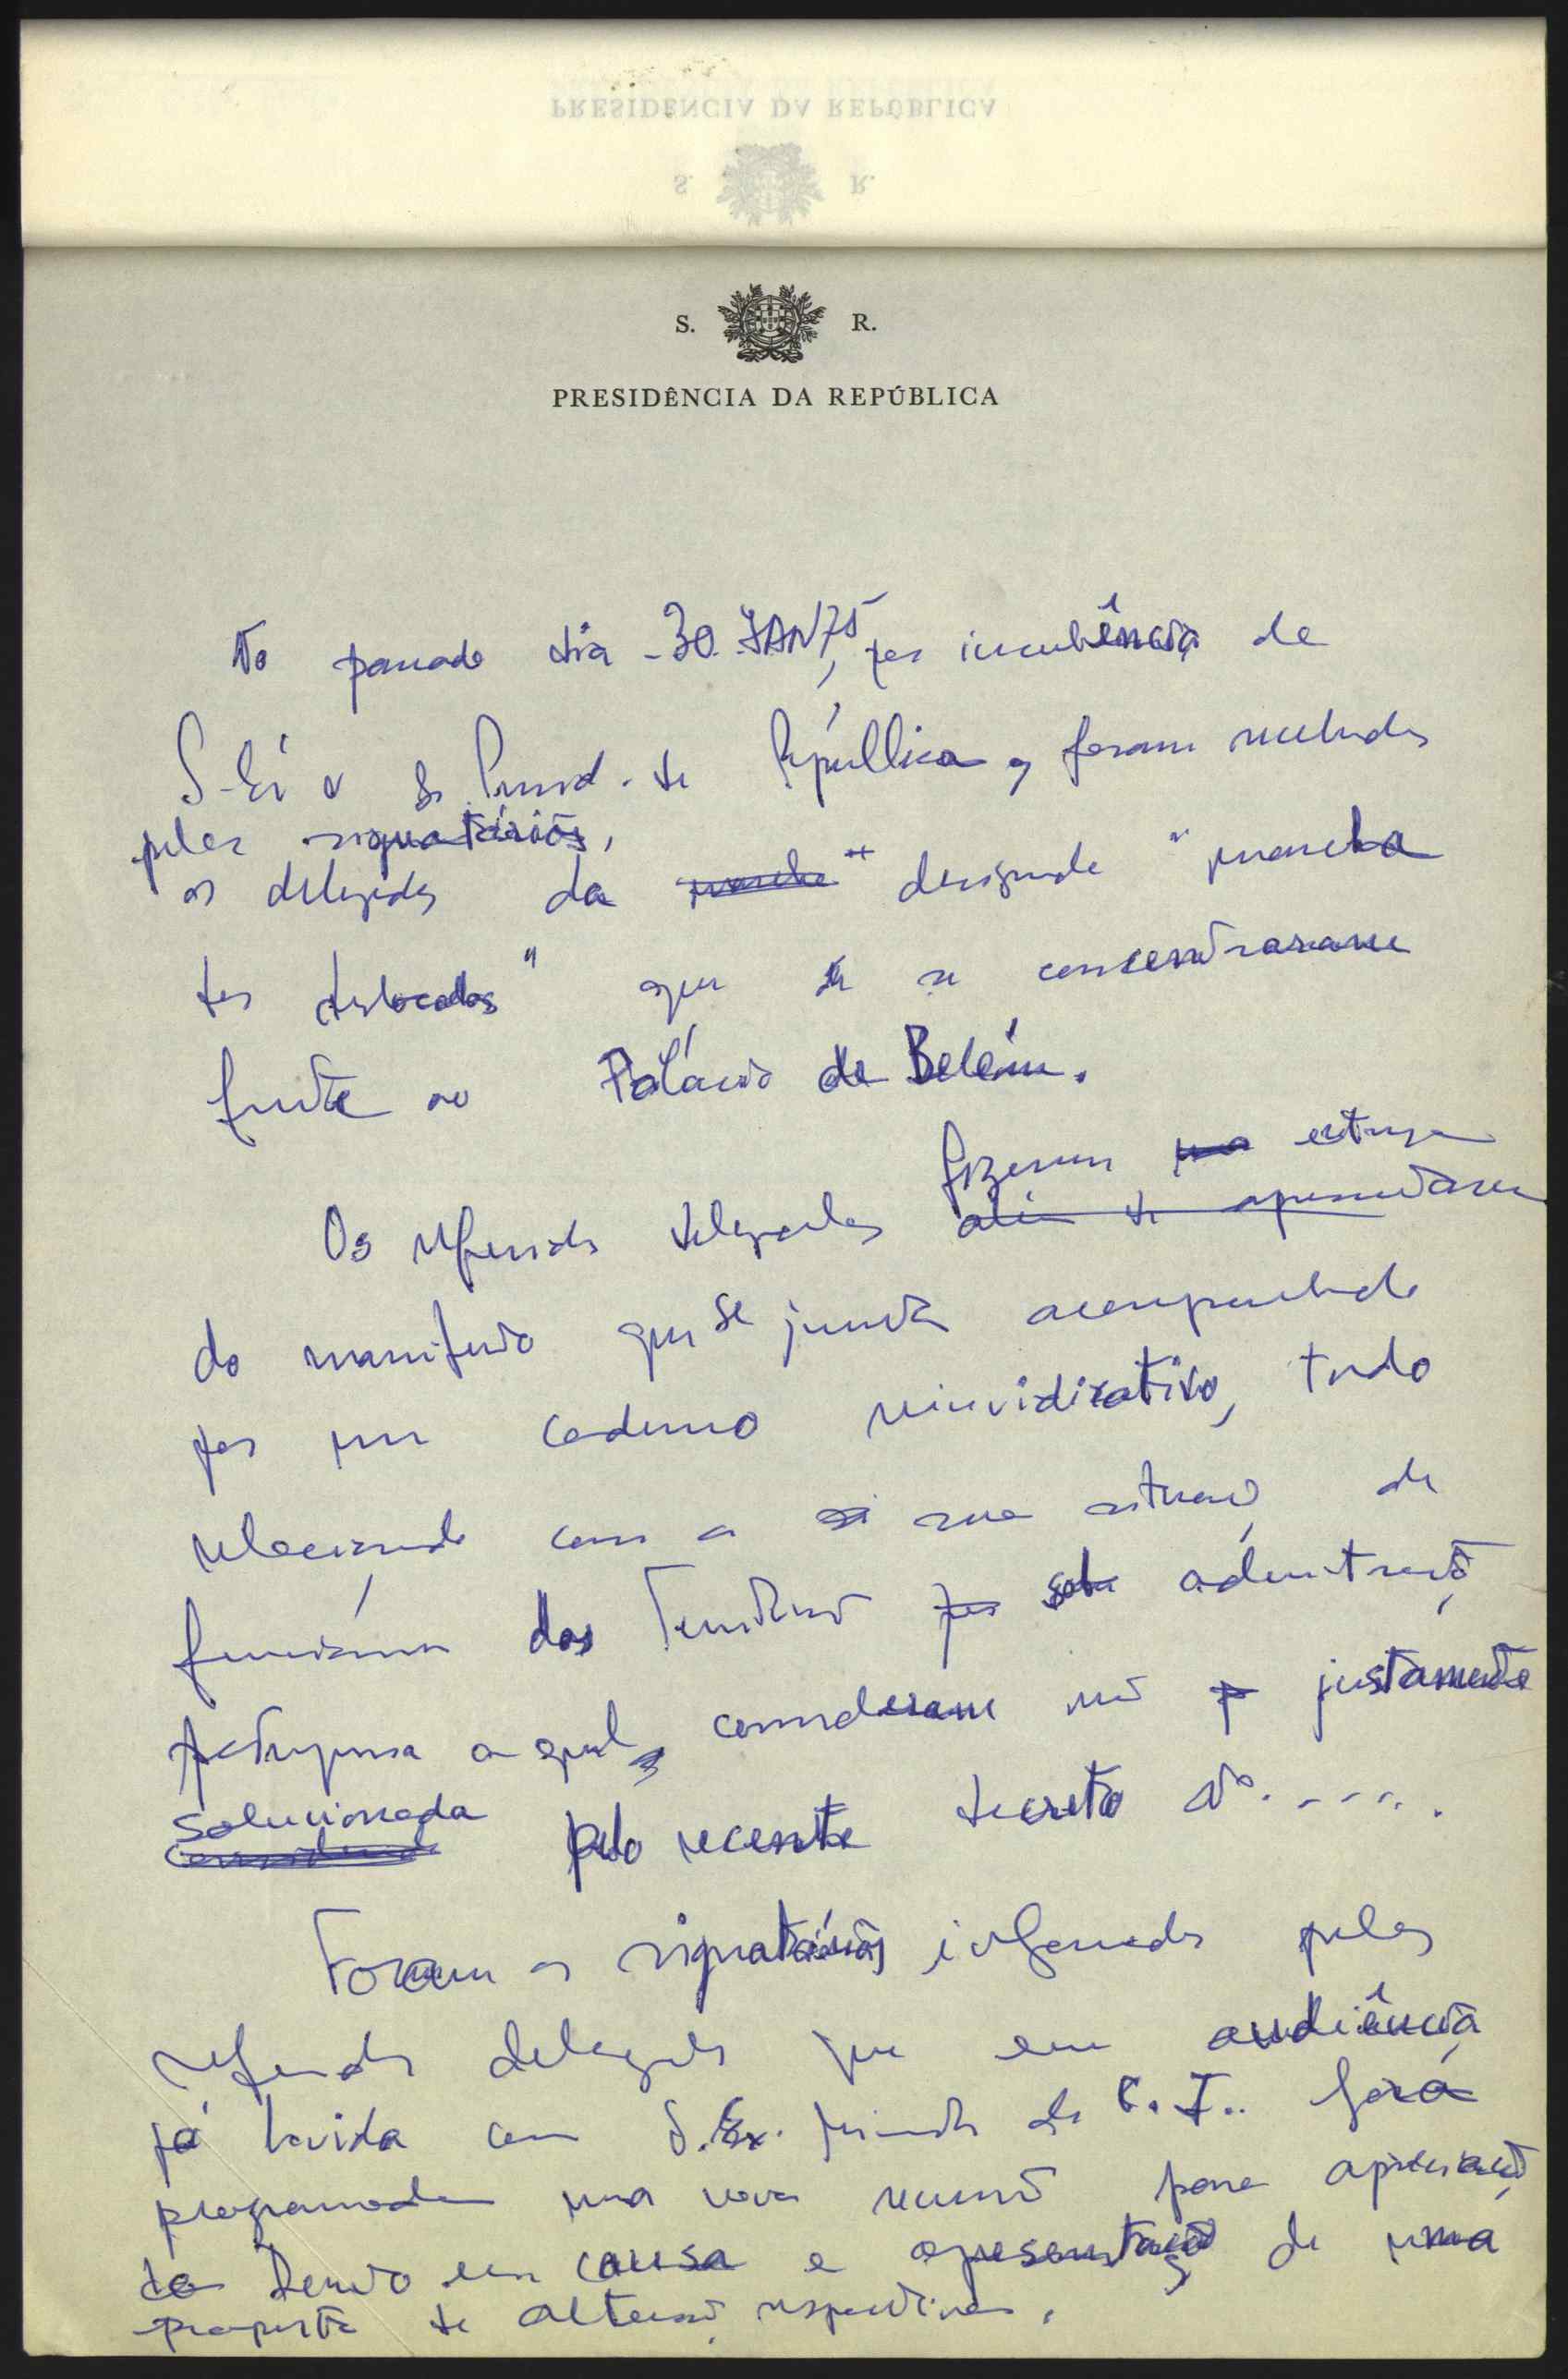 S. R.
PRESIDÊNCIA DA REPÚBLICA
No passado dia 30 JAN 75, por incumbência de
S. Ex. o Sr. Presid. da República, foram recebidos
pelos signatários,
os delegados da marcha " designada "marcha
dos deslocados" que se concentraram
frente ao Palácio de Belém.
fizeram uma entrega
além de apresentarem
do manifesto que se junta acompanhado
por um caderno reinvidicativo, tudo
relacionado com a sua situação de
funcionários dos Territórios sob administração
portuguesa a qual consideram não justamente
solucionada
pelo recente decreto Nº.....
Foram os signatários informados pelos
referidos delegados que em audiência
já havida com S. Ex. ministro da C. I. fora
programada uma nova reunião para apreciação
do Decreto em causa e apresentação de uma
proposta de alteração respectiva.